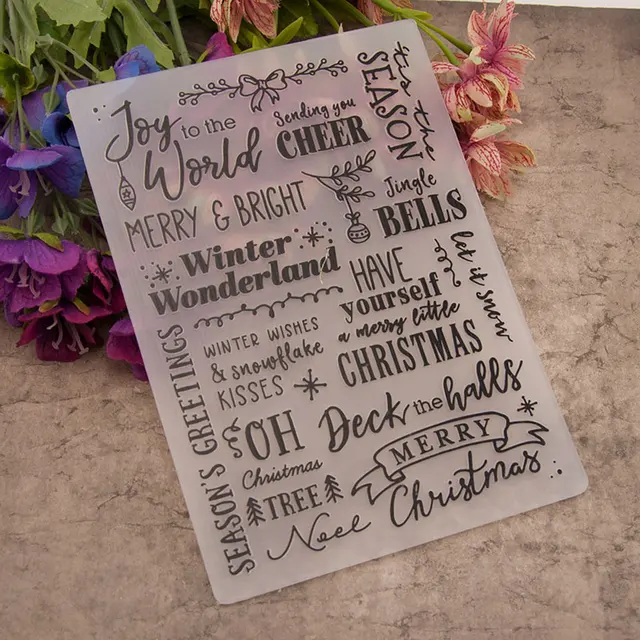 Joy to the
World
Sending you
CHEER
'tis the
SEASON
MERRY & BRIGHT
Jingle
BELLS
Winter
Wonderland
HAVE
yourself
a merry little
CHRISTMAS
let it snow
WINTER WISHES
& snowflake
KISSES
SEASON'S GREETINGS
OH
Christmas
TREE
Deck the halls
MERRY
Christmas
Noel